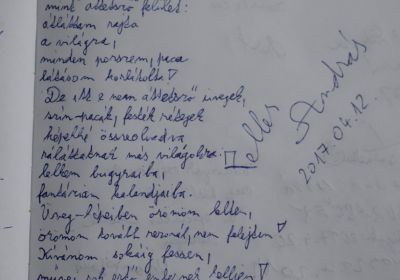 mint átlátszó felület:
átláttam rajta
a világra,
minden porszem, paca
látásom korlátolta
De itt e nem átlátszó üvegek,
szín-pacák, festék rétegek
képekké összeolvadva
rálátnak más világokra.
lelkem bugyraiba,
fantáziám kalandjaiba.
Üveg-képeiben örömöm lelem,
örömöm tovább rezonál, nem felejtem
Kívánom sokáig fessen,
Telles András
2017.04.12.